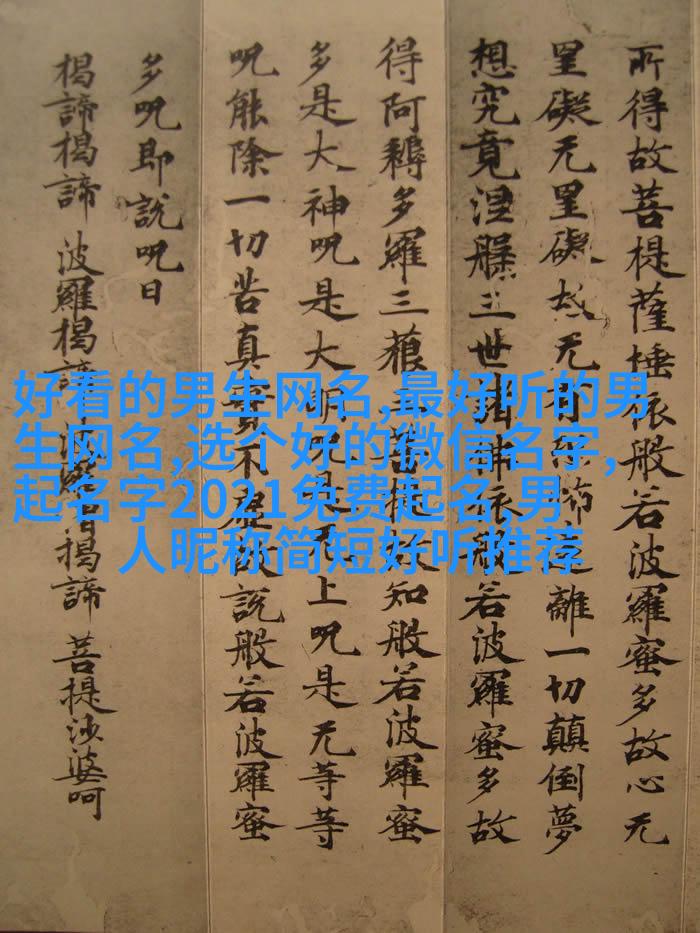 所得故菩提薩埵依般若波羅蜜多故心无
罣礙无罣礙故无有恐怖遠離一切顛倒夢
想究竟涅槃三世諸佛依般若波羅蜜多故
得阿耨多羅三藐三菩提故知般若波羅蜜
多是大神呪是大明呪是无上呪是无等等
呪能除一切苦真實不虛故說般若波羅蜜
多呪即說呪曰
揭諦揭諦 波羅揭諦 波羅僧揭諦 菩提沙婆呵
好看的男生网名,最好听的男
生网名,选个好的微信名字,
起名字2021免费起名,男
人昵称简短好听推荐